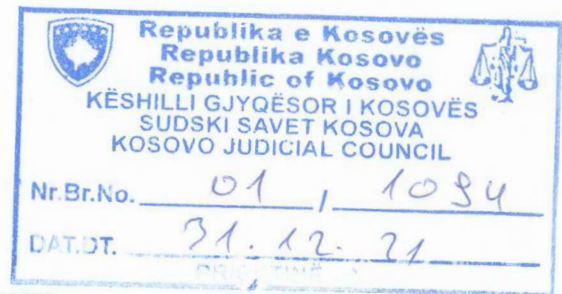 Republika e Kosovës
Republika Kosovo
Republic of Kosovo
KËSHILLI GJYQËSOR I KOSOVËS
SUDSKI SAVET KOSOVA
KOSOVO JUDICIAL COUNCIL
Nr.Br.No. 01 / 1094
DAT.DT. 31.12.21